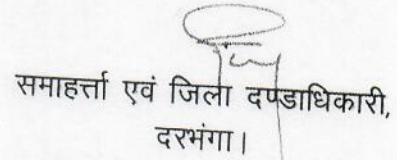 समाहर्त्ता एवं जिला दण्डाधिकारी,
दरभंगा।